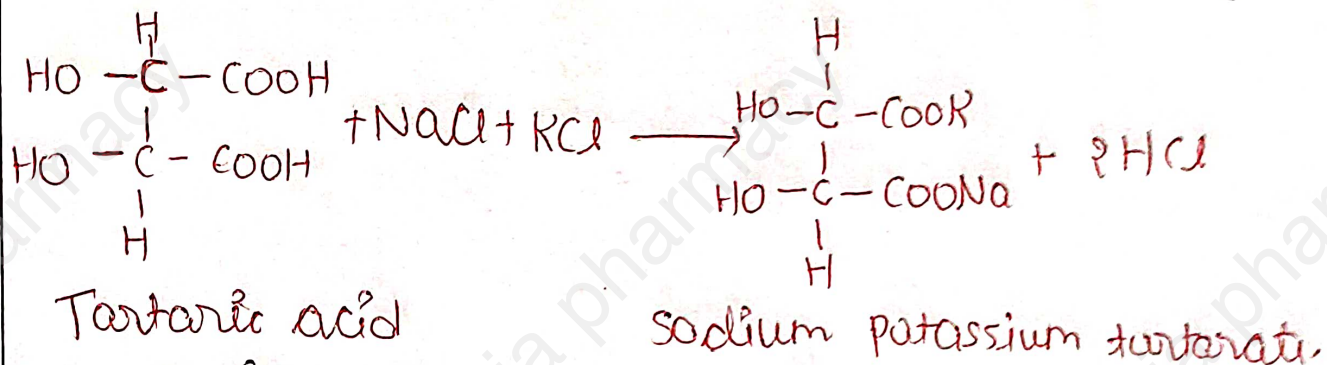 H
HO – C – COOH
HO – C – COOH
H
+ NaCl + KCl ⟶
H
HO – C – COOK
HO – C – COONa
H
+ 2HCl
Tartaric acid
sodium potassium tartarate.